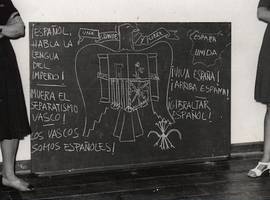 ¡ESPAÑOL,
HABLA LA
LENGUA
DEL
IMPERIO!
MUERA EL
SEPARATISMO
VASCO!
LOS VASCOS
SOMOS ESPAÑOLES!
UNA
GRANDE
LIBRE
ESPAÑA
UNIDA
¡VIVA ESPAÑA!
¡ARRIBA ESPAÑA!
¡GIBRALTAR
ESPAÑOL!